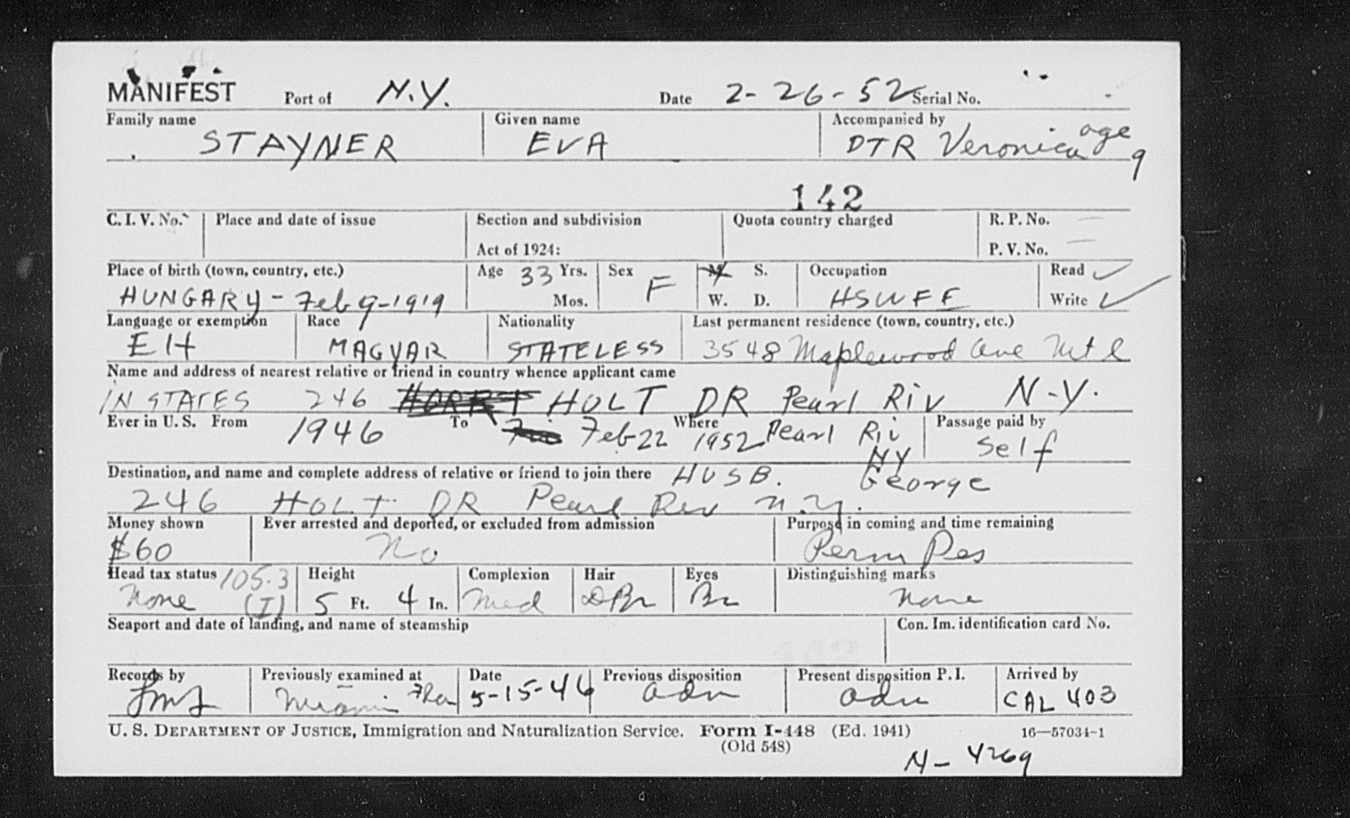 MANIFEST Port of N.Y. Date 2-26-52 Serial No.
Family name Given name Accompanied by
STAYNER EVA DTR Veronica age 9
142
C. I. V. No. Place and date of issue Section and subdivision Quota country charged R. P. No.
Act of 1924: P. V. No.
Place of birth (town, country, etc.) Age 33 Yrs. Sex F M. S. Occupation Read ✓
HUNGARY - Feb 9-1919 Mos. W. D. HSWFE Write ✓
Language or exemption Race Nationality Last permanent residence (town, country, etc.)
E H MAGYAR STATELESS 3548 Maplewood Ave Mtl
Name and address of nearest relative or friend in country whence applicant came
IN STATES 246 HOLT DR Pearl Riv N.Y.
Ever in U. S. From 1946 To Feb 22 1952 Where Pearl Riv NY Passage paid by Self
Destination, and name and complete address of relative or friend to join there HUSB. George
246 HOLT DR Pearl Riv N.Y.
Money shown Ever arrested and deported, or excluded from admission Purpose in coming and time remaining
$60 No Perm Res
Head tax status 105.3 Height Complexion Hair Eyes Distinguishing marks
None (I) 5 Ft. 4 In. Med DBr Br none
Seaport and date of landing, and name of steamship Con. Im. identification card No.
Records by Previously examined at Date Previous disposition Present disposition P. I. Arrived by
Miami Fla 5-15-46 adm adm CAL 403
U. S. DEPARTMENT OF JUSTICE, Immigration and Naturalization Service. Form I-448 (Ed. 1941) 16—57034-1
(Old 548)
N- 4269